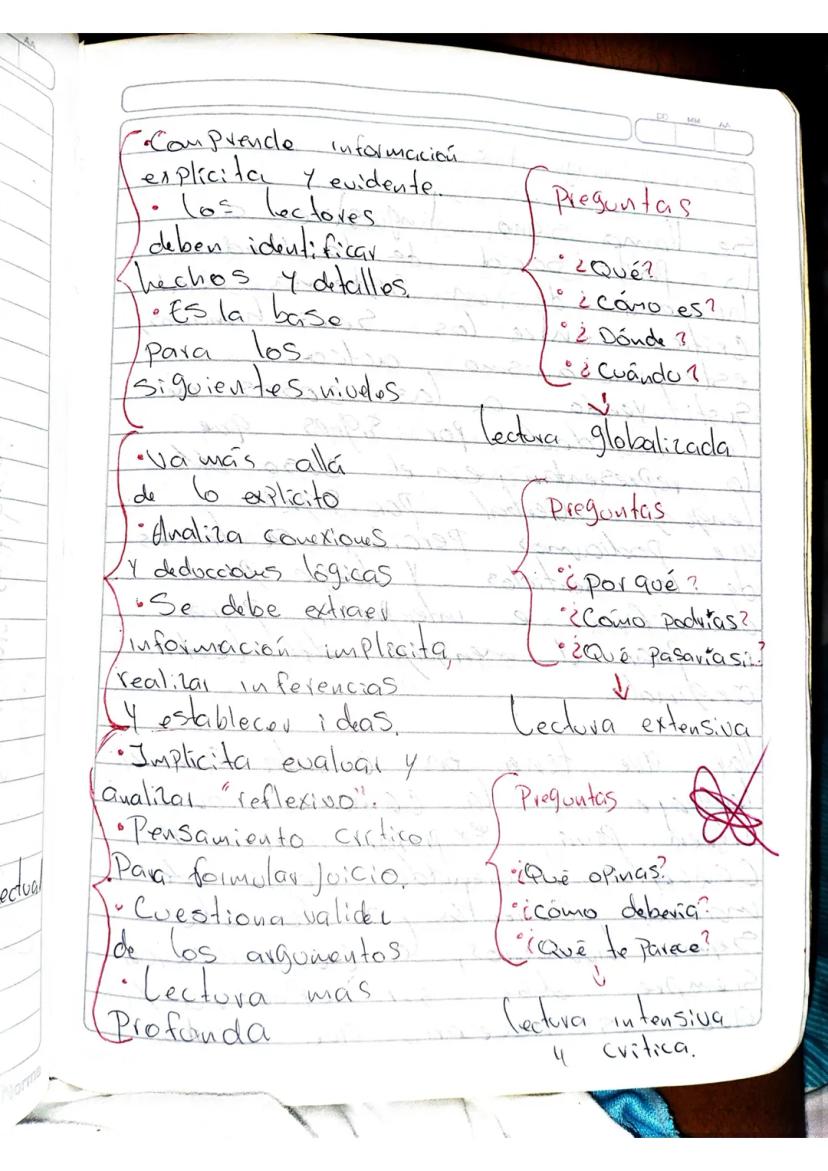 DD MM AA
•Comprende información
explícita y evidente.
• los lectores
deben identificar
hechos y detalles.
• Es la base
para los
siguientes niveles
Preguntas
• ¿Qué?
• ¿Cómo es?
• ¿Dónde?
• ¿Cuándo?
↓
Lectura globalizada
•Va más allá
de lo explícito
•Analiza conexiones
y deducciones lógicas
•Se debe extraer
información implícita,
realizar inferencias
y establecer ideas.
Preguntas
•¿por qué?
•¿Cómo podrías?
•¿Qué pasaría si..?
↓
Lectura extensiva
•Implícita evaluar y
analizar "reflexivo".
•Pensamiento crítico
Para formular juicio.
• Cuestiona validez
de los argumentos
• Lectura mas
Profunda
Preguntas
•¿Qué opinas?
•¿cómo debería?
•¿Qué te parece?
↓
Lectura intensiva
y crítica.
ectual
Norma
AA